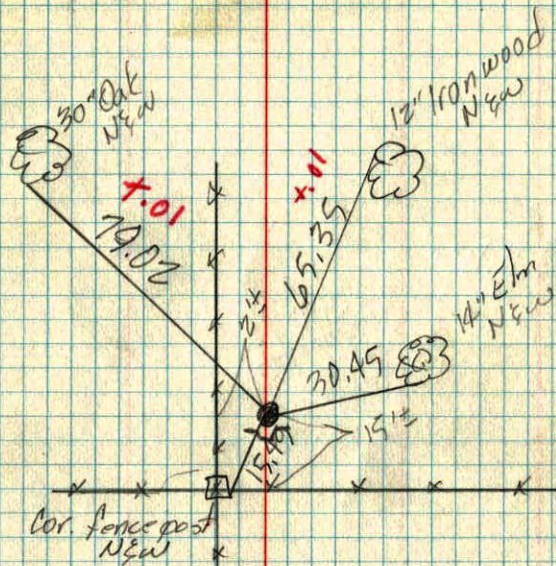 30" Oak
N&W
12" Ironwood
N&W
+.01
79.02
+.01
65.35
14" Elm
N&W
2'±
30.45
15'±
15.49
Cor. fence post
N&W